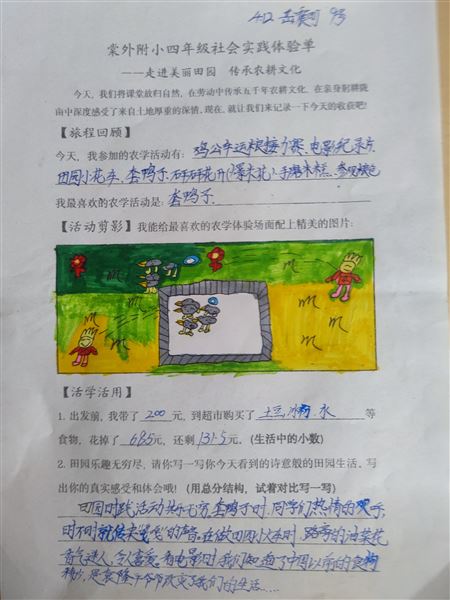 412 9号
棠外附小四年级社会实践体验单
——走进美丽田园 传承农耕文化
今天，我们将课堂放归自然，在劳动中传承五千年农耕文化，在亲身躬耕陇
亩中深度感受了来自土地厚重的深情。现在，就让我们来记录一下今天的收获吧！
【旅程回顾】
今天，我参加的农学活动有：鸡公车运粮接力赛、电影纪录片
田园小火车、套鸭子、砰砰花开(爆米花)、手磨
我最喜欢的农学活动是：套鸭子
【活动剪影】我能给最喜欢的农学体验场面配上精美的图片：
【活学活用】
1. 出发前，我带了 200 元，到超市购买了 土豆 水 等
食物，花掉了 68.5 元，还剩 131.5 元。(生活中的小数)
2. 田园乐趣无穷尽，请你写一写你今天看到的诗意般的田园生活，写
出你的真实感受和体会哦！(用总分结构，试着对比写一写)
田园时践活动其乐无穷，套鸭子时，同学们热情的欢呼，
时不时就传来 的声音。在做田园小火车时，路旁的油菜花
香气迷人，令人喜爱。看电影时我们知道了中国以前的食物
稀少，是袁隆平爷爷改变了我们的生活……